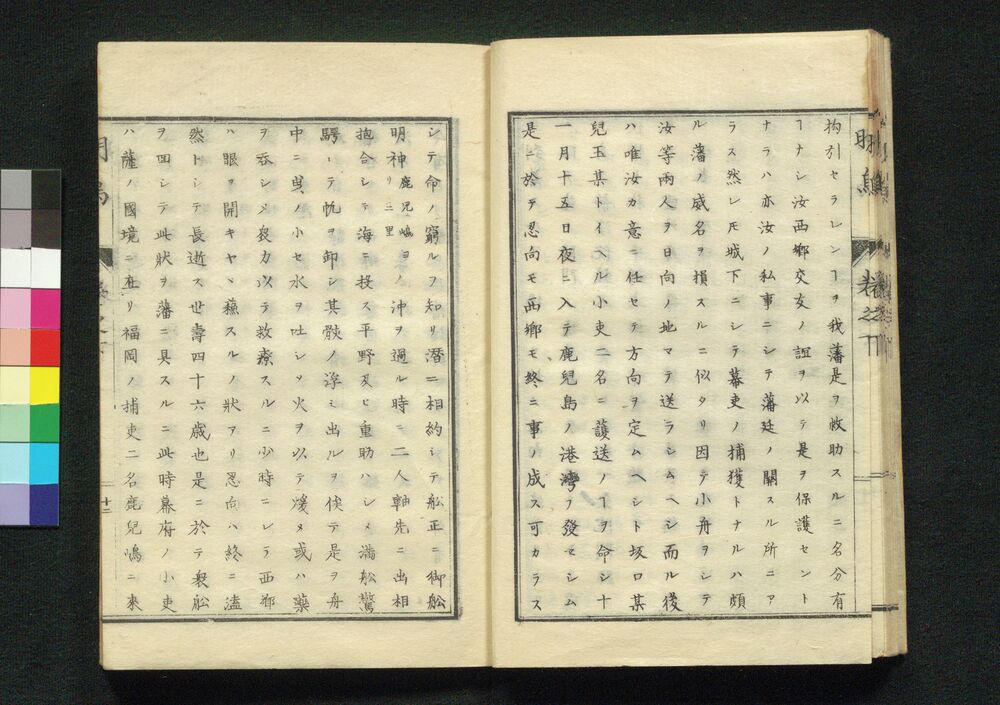 拘引セラレンヿヲ我藩是ヲ救助スルニ名分有
ヿナシ汝西郷交友ノ誼ヲ以テ是ヲ保護セント
ナラハ亦汝ノ私事ニシテ藩廷ノ關スル所ニア
ラス然レ𪜈城下ニシテ幕吏ノ捕獲トナルハ頗
ル藩ノ威名ヲ損スルニ似タリ因テ小舟ヲシテ
汝等兩人ヲ日向ノ地マテ送ラシムヘシ而ル後
ハ唯汝カ意ニ任セテ方向ヲ定ムヘシト坂口某
兒玉某トイヘル小吏二名ニ護送ノヿヲ命シ十
一月十五日夜ニ入テ鹿兒島ノ港灣ヲ發マシム
是ニ於テ忍向モ西郷モ終ニ事ノ成ス可カラス
シテ命ノ窮ルヲ知リ潜ニ相約シテ舩正ニ御舩
明神鹿兒嶋ヨリ三里ノ沖ヲ過ル時ニ二人軸先ニ出相
抱合シテ海ニ投ス平野及ヒ重助ハシメ滿舩驚
騒シテ帆ヲ卸シ其骸ノ浮ミ出ルヲ俟テ是ヲ舟
中ニ曳ノホセ水ヲ吐シメ火ヲ以テ煖メ或ハ藥
ヲ呑シメ衆力以テ救療スルニ少時ニシテ西郷
ハ眼ヲ開キヤヽ蘓スルノ狀アリ忍向ハ終ニ溘
然トシテ長逝ス世壽四十六歳也是ニ於テ衆舩
ヲ回シテ此狀ヲ藩ニ具スルニ此時幕府ノ小吏
ハ薩ノ國境ニ在リ福岡ノ捕吏二名鹿兒嶋ニ來
十二